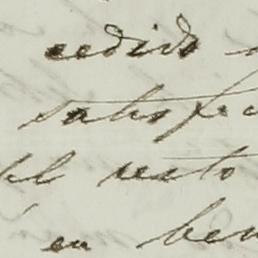 cedido
satisfe
el resto
en ben